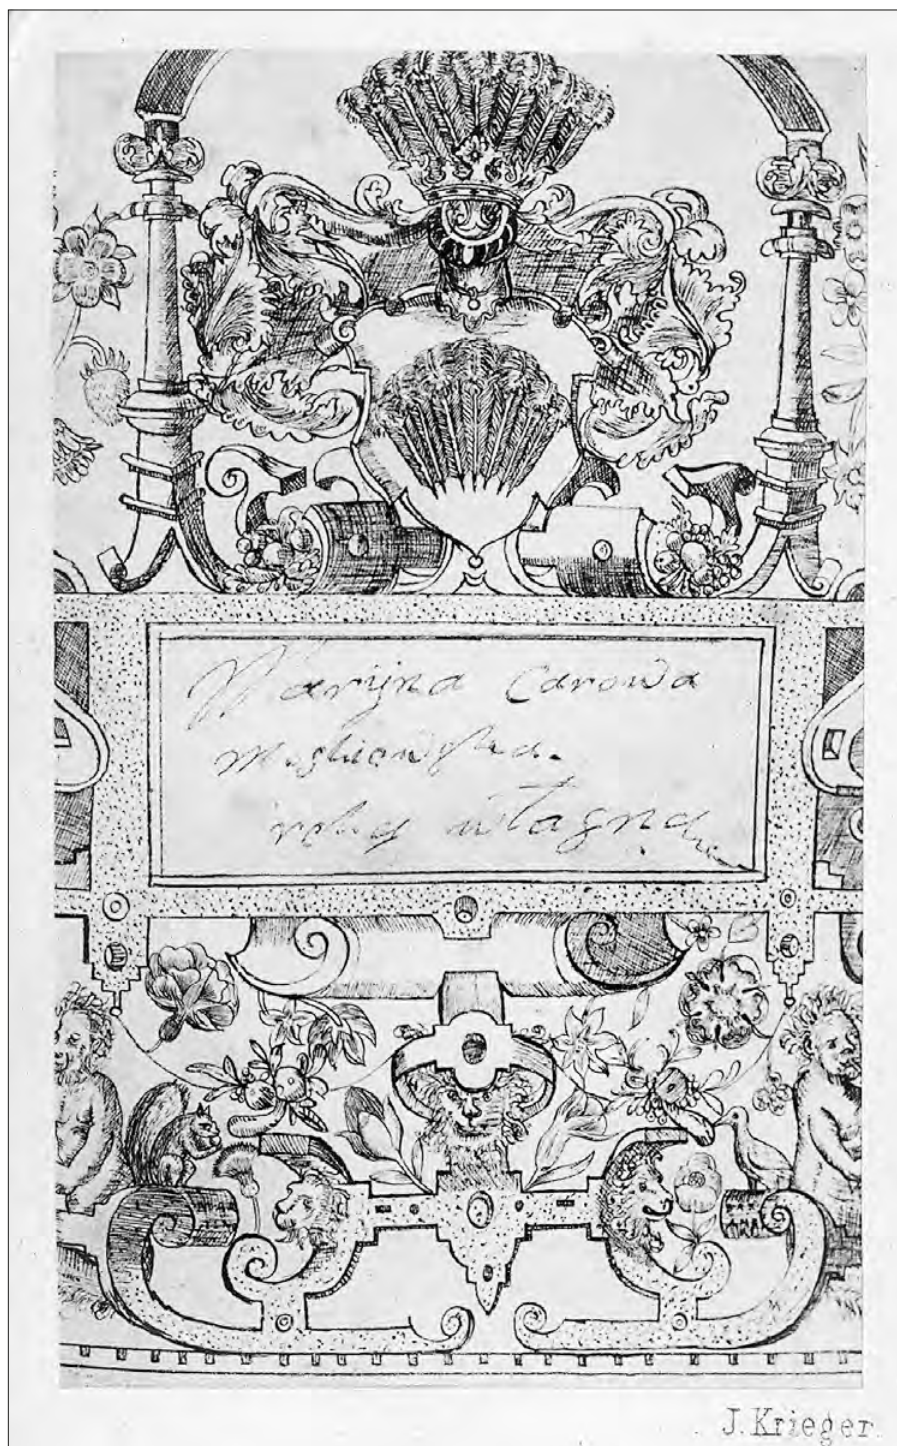 Maryna Carowa
Moskiewska.
ręką własną
J. Krieger